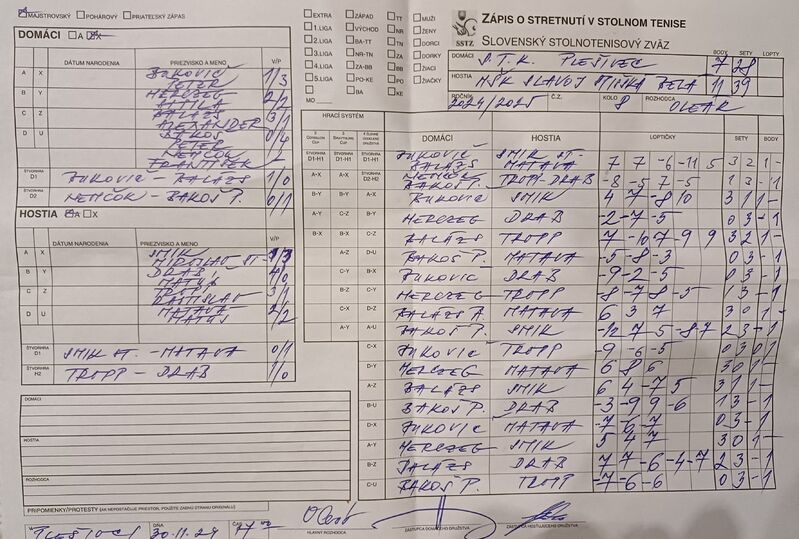 MAJSTROVSKÝ POHÁROVÝ PRIATEĽSKÝ ZÁPAS
DOMÁCI A X
DÁTUM NARODENIA PRIEZVISKO A MENO V/P
A X ĎURKOVIČ PETER 1/3
B Y HERCZEG ATTILA 2/2
C Z BALÁZS ALEXANDER 3/1
D U BAKOŠ PETER 0/4
NEMČOK FRANTIŠEK
ŠTVORHRA D1 ĎURKOVIČ - BALÁZS 1/0
ŠTVORHRA D2 NEMČOK - BAKOŠ P. 0/1
HOSTIA A X
DÁTUM NARODENIA PRIEZVISKO A MENO V/P
A X SMIK MIROSLAV ST. 1/3
B Y DRAB MATÚŠ 4/0
C Z TROPP RASTISLAV 3/1
D U MATAVA MATÚŠ 2/2
ŠTVORHRA D1 SMIK ST. - MATAVA 0/1
ŠTVORHRA H2 TROPP - DRAB 1/0
DOMÁCI
HOSTIA
ROZHODCA
PRIPOMIENKY/PROTESTY (AK NEPOSTAČUJE PRIESTOR, POUŽITE ZADNÚ STRANU ORIGINÁLU)
V PLEŠIVCI DŇA 30.11.24 ČAS 17 00
HLAVNÝ ROZHODCA
ZÁSTUPCA DOMÁCEHO DRUŽSTVA
ZÁSTUPCA HOSŤUJÚCEHO DRUŽSTVA
EXTRA ZÁPAD TT MUŽI
1.LIGA VÝCHOD NR ŽENY
2.LIGA BA-TT TN DORCI
3.LIGA NR-TN ZA DORKY
4.LIGA ZA-BB BB ŽIACI
5.LIGA PO-KE PO ŽIAČKY
BA KE
MO
SSTZ
ZÁPIS O STRETNUTÍ V STOLNOM TENISE
SLOVENSKÝ STOLNOTENISOVÝ ZVÄZ
BODY SETY LOPTY
DOMÁCI S.T.K. PLEŠIVEC 7 28
HOSTIA MŠK SLAVOJ SPIŠSKÁ BELÁ 11 39
ROČNÍK 2024/2025 Č.Z. KOLO 8 ROZHODCA OLEÁR
HRACÍ SYSTÉM
DOMÁCI HOSTIA LOPTIČKY SETY BODY
ŠTVORHRA D1-H1 ŠTVORHRA D1-H1 ŠTVORHRA D1-H1 ĎURKOVIČ BALÁZS SMIK ST. MATAVA 7 7 -6 -11 5 3 2 1 -
A-X A-X ŠTVORHRA D2-H2 NEMČOK BAKOŠ P. TROPP-DRAB -8 -5 7 -5 1 3 - 1
B-Y B-Y A-X ĎURKOVIČ SMIK 4 7 -8 10 3 1 1 -
A-Y C-Z B-Y HERCZEG DRAB -2 -7 -5 0 3 - 1
B-X B-X C-Z BALÁZS TROPP 7 -10 7 -9 9 3 2 1 -
A-Z D-U BAKOŠ P. MATAVA -5 -8 -3 0 3 - 1
C-Y B-X ĎURKOVIČ DRAB -9 -2 -5 0 3 - 1
B-Z C-Y HERCZEG TROPP -8 -7 8 -5 1 3 - 1
C-X D-Z BALÁZS A. MATAVA 6 3 7 3 0 1 -
A-Y A-U BAKOŠ P. SMIK -12 7 5 -8 -7 2 3 - 1
C-X ĎURKOVIČ TROPP -9 -6 -5 0 3 0 1
D-Y HERCZEG MATAVA 6 8 6 3 0 1 -
A-Z BALÁZS SMIK 6 4 -7 5 3 1 1 -
B-U BAKOŠ P. DRAB -3 -9 9 -6 1 3 - 1
D-X ĎURKOVIČ MATAVA -7 -6 -7 0 3 - 1
A-Y HERCZEG SMIK 5 4 7 3 0 1 -
B-Z BALÁZS DRAB 7 7 -6 -4 -7 2 3 - 1
C-U BAKOŠ P. TROPP -7 -6 -6 0 3 - 1